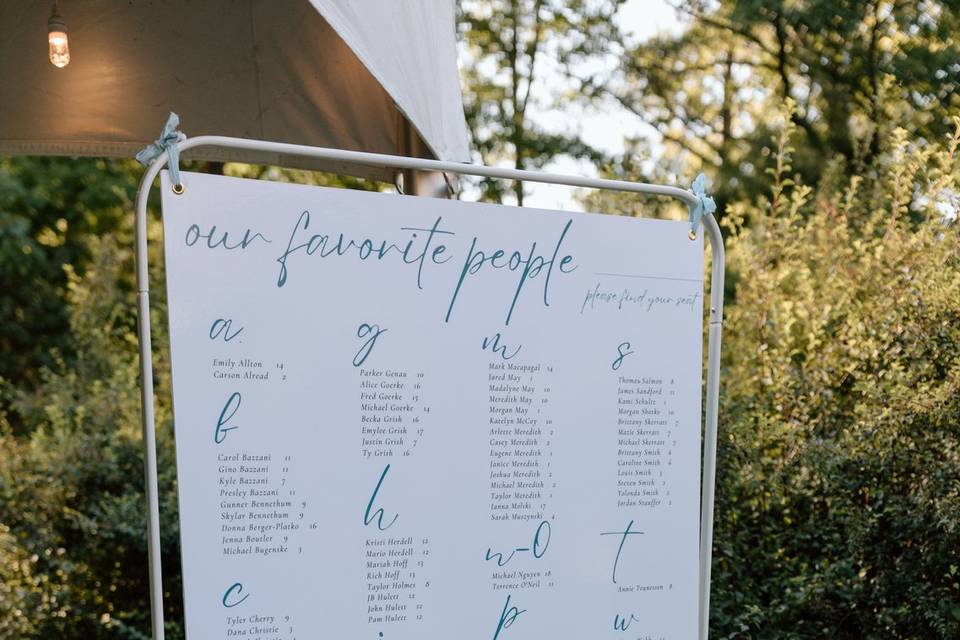 our favorite people
please find your seat
a.
Emily Allton 14
Carson Alread 2
b
Carol Bazzani 11
Gino Bazzani 11
Kyle Bazzani 7
Presley Bazzani 11
Gunner Bennethum 9
Skylar Bennethum 9
Donna Berger-Platko 16
Jenna Boutler 9
Michael Bugenske 3
c
Tyler Cherry 9
Dana Christie 3
g
Parker Genau 10
Alice Goerke 16
Fred Goerke 15
Michael Goerke 14
Becka Grish 16
Emylee Grish 17
Justin Grish 7
Ty Grish 16
h
Kristi Herdell 12
Mario Herdell 12
Mariah Hoff 13
Rich Hoff 13
Taylor Holmes 8
JB Hulett 12
John Hulett 12
Pam Hulett 12
m
Mark Macapagal 14
Jared May 1
Madalyne May 10
Meredith May 10
Morgan May 1
Katelyn McCoy 10
Arlette Meredith 2
Casey Meredith 2
Eugene Meredith 1
Janice Meredith 1
Joshua Meredith 2
Michael Meredith 2
Taylor Meredith 1
Ianna Molski 17
Sarah Muszynski 4
n-o
Michael Nguyen 18
Terrence O'Neil 11
p
s
Thomas Salmon 8
James Sandford 11
Kami Schultz 1
Morgan Shotko 10
Brittany Skerratt 7
Mazie Skerratt 7
Michael Skerratt 7
Brittany Smith 6
Caroline Smith 6
Louis Smith 3
Steven Smith 2
Yolonda Smith 2
Jordan Stauffer 2
t
Annie Teunessen 8
w